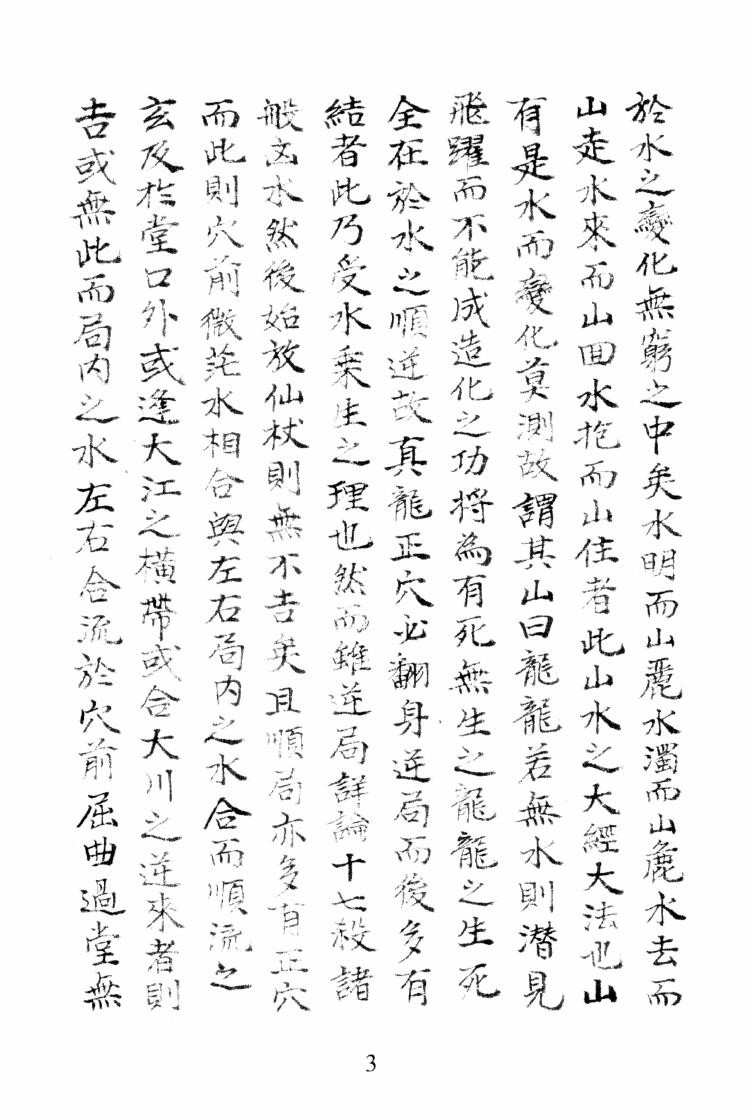 於水之變化無窮之中矣水明而山麗水濁而山麁水去而
山走水來而山回水抱而山住者此山水之大經大法也山
有是水而變化莫測故謂其山曰龍龍若無水則潜見
飛躍而不能成造化之功将為有死無生之龍龍之生死
全在於水之順逆故真龍正穴必翻身逆局而後多有
結者此乃受水乗生之理也然而雖逆局詳論十七殺諸
般凶水然後始放仙杖則無不吉矣且順局亦多有正穴
而此則穴前微茫水相合與左右局内之水合而順流之
玄及於堂口外或逢大江之横帶或合大川之逆來者則
吉或無此而局内之水左右合流於穴前屈曲過堂無
3